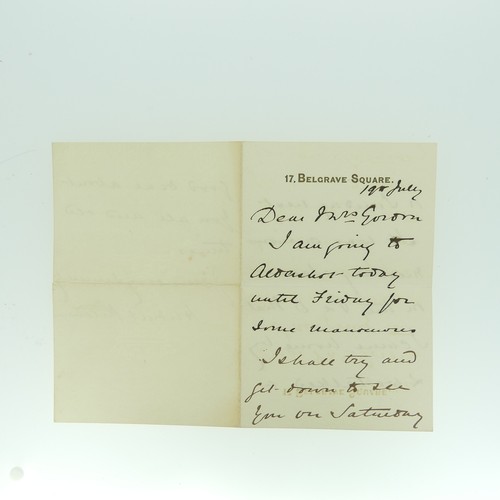 17, BELGRAVE SQUARE.
19th July
Dear Mrs Gordon
I am going to
Aldershot today
until Friday for
some manoeuvres
I shall try and
get down to see
you on Saturday